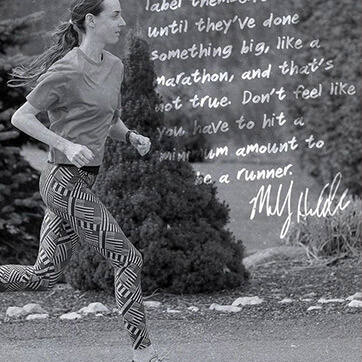 label themse
until they've done
something big, like a
marathon, and that's
not true. Don't feel like
you have to hit a
minimum amount to
be a runner.